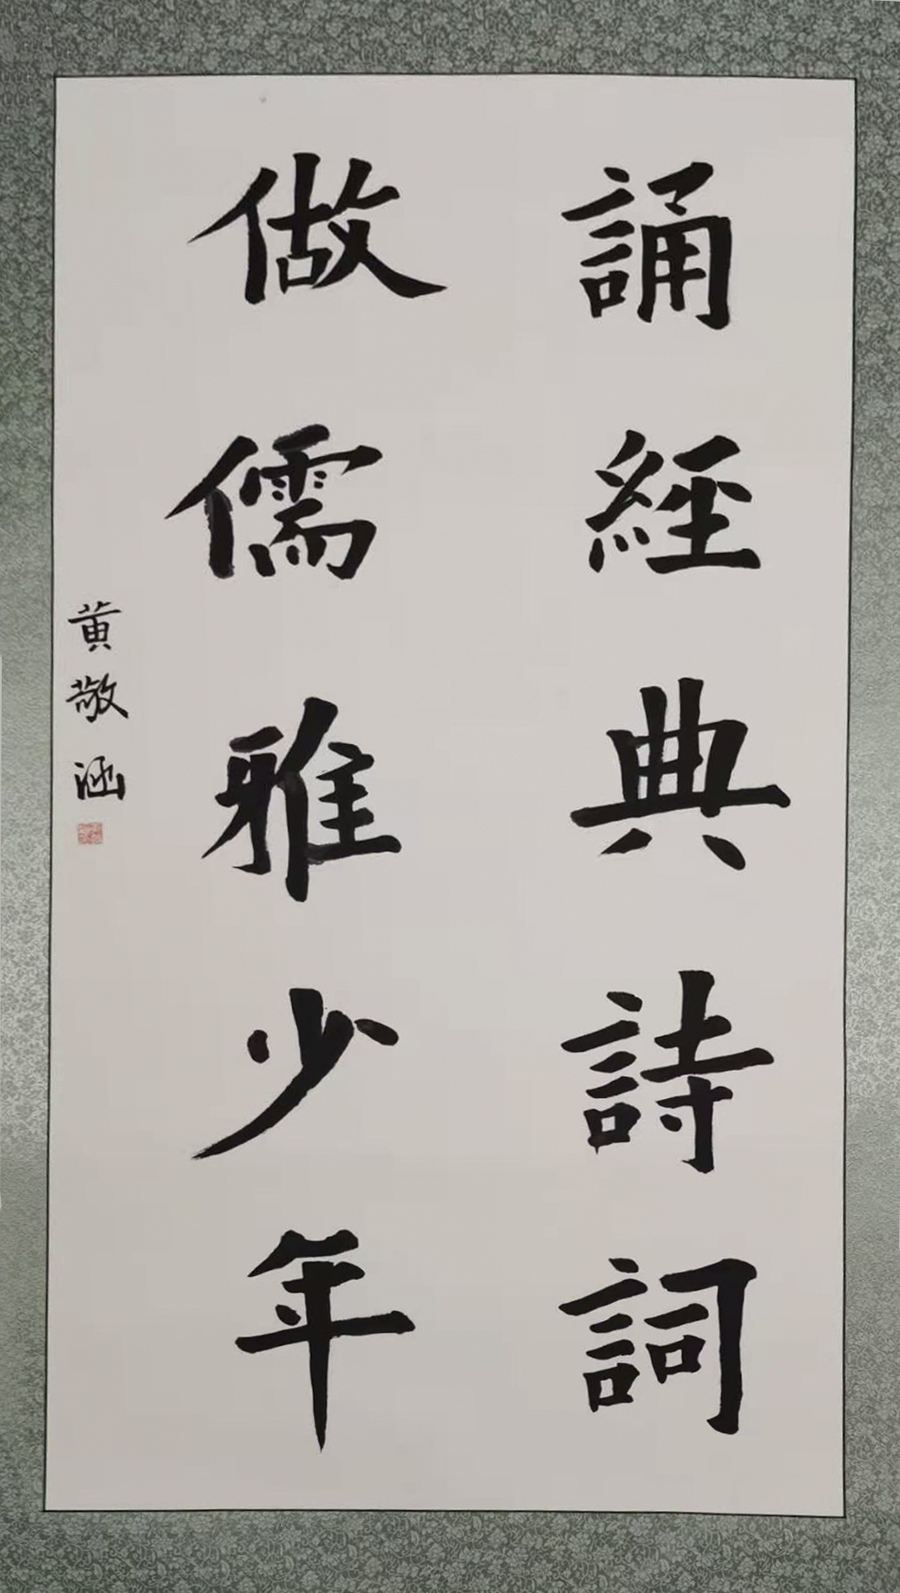 誦經典詩詞
做儒雅少年
黄敬涵